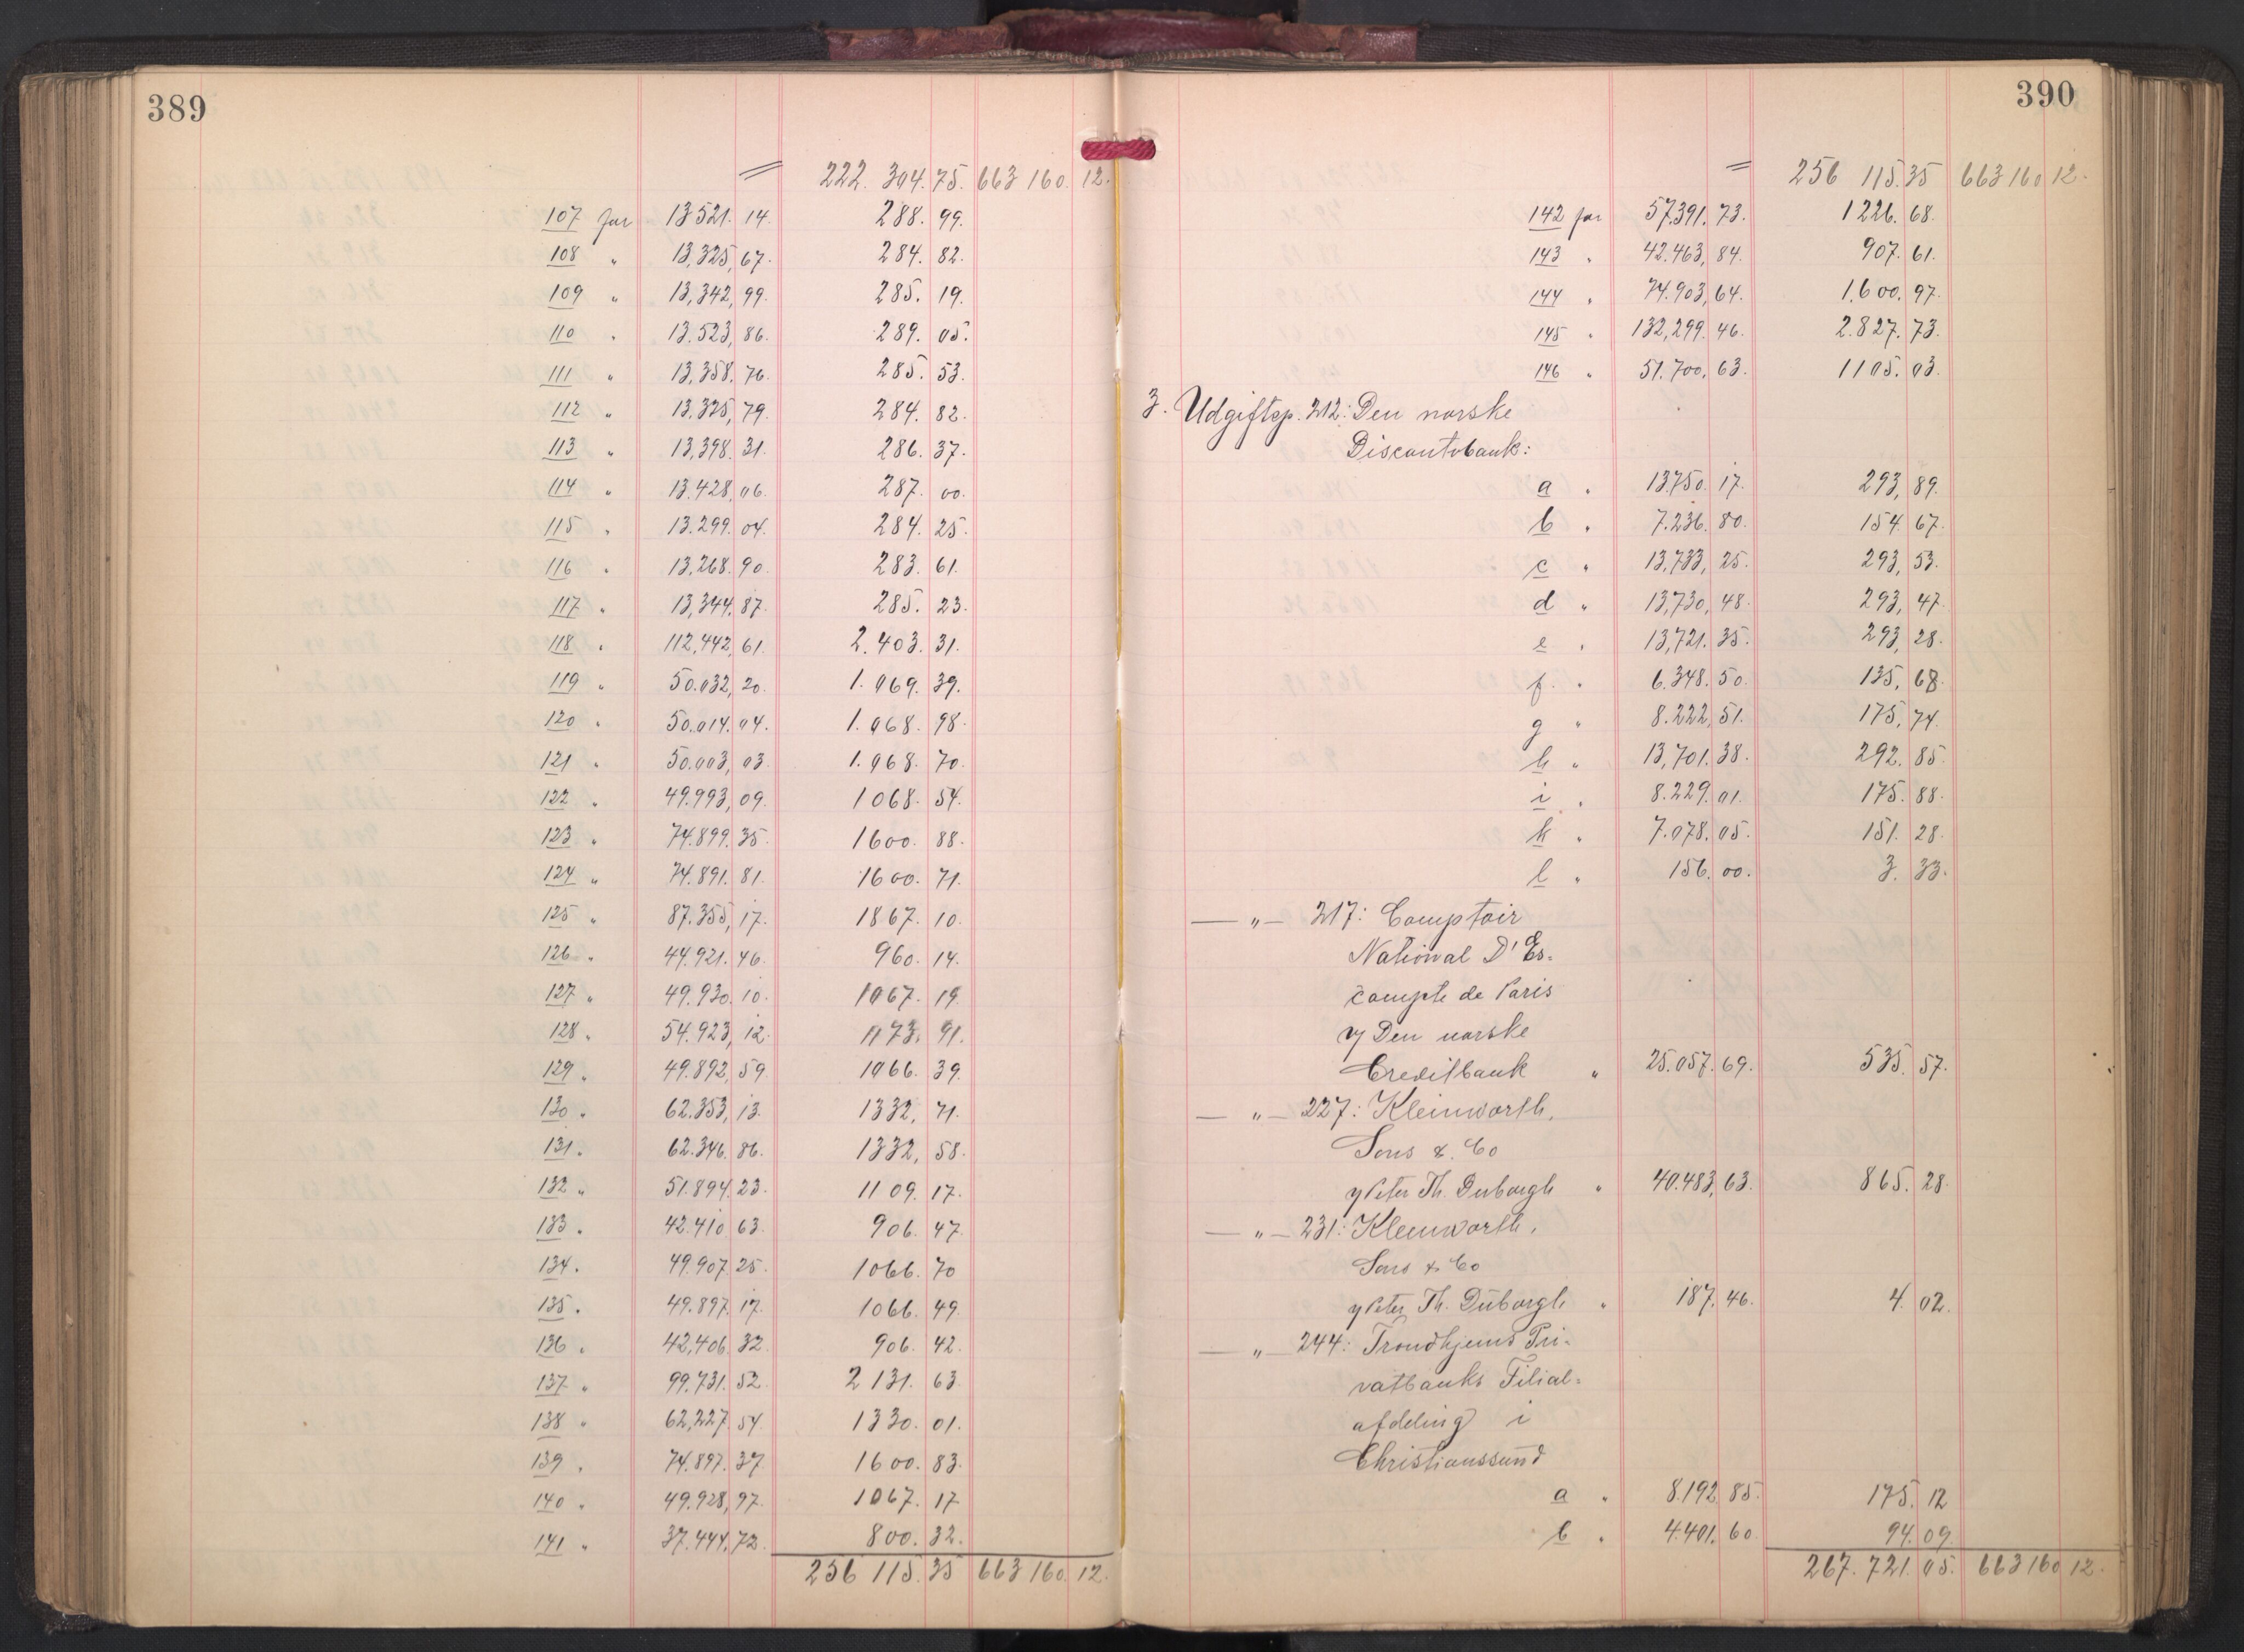 389
= 222. 304. 75. 663 160. 12.
107 for 13521. 14. 288. 99.
108 " 13,325, 67. 284. 82.
109 " 13,342, 99. 285. 19.
110 " 13.523, 86. 289. 05.
111 " 13,358. 76. 285. 53.
112 " 13.325, 79. 284. 82.
113 " 13,398. 31. 286. 37.
114 " 13.428, 06. 287. 00.
115 " 13.299. 04. 284. 25.
116 " 13,268. 90. 283. 61.
117 " 13,344. 87. 285. 23.
118 " 112,442, 61. 2.403. 31.
119 " 50.032, 20. 1.069. 39.
120 " 50.014. 04. 1.068. 98.
121 " 50.003, 03. 1.068. 70.
122 " 49.993, 09. 1068. 54.
123 " 74.899. 35. 1600. 88.
124 " 74.891. 81. 1600. 71.
125 " 87.355, 17. 1867. 10.
126 " 44.921. 46. 960. 14.
127 " 49.930. 10. 1067. 19.
128 " 54.923, 12. 1173. 91.
129 " 49.892, 59. 1066. 39.
130 " 62.353, 13. 1332, 71.
131 " 62.346. 86. 1332, 58.
132 " 51.894. 23. 1109. 17.
133 " 42.410 63. 906. 47.
134 " 49.907 25. 1066. 70
135 " 49.897. 17. 1066. 49.
136 " 42,406. 32. 906. 42.
137 " 99.731. 52. 2131. 63.
138 " 62,227. 54. 1330. 01.
139 " 74.897. 37. 1600. 83.
140 " 49.928, 97. 1067. 17
141 " 37.444, 72. 800. 32.
256 115. 35 663 160. 12.
390
= 256 115. 35 663 160 12.
142 for 57.391. 73. 1226. 68.
143 " 42.463, 84. 907. 61.
144 " 74.903, 64. 1.600. 97.
145 " 132,299. 46. 2.827. 73.
146 " 51.700, 63. 1105. 03.
3. Udgiftsp. 212: Den norske
Discontobank:
a " 13.750. 17. 293, 89.
b " 7.236. 80. 154. 67.
c " 13,733, 25. 293, 53.
d " 13,730, 48. 293, 47
e " 13,721. 35. 293, 28.
f. " 6.348. 50. 135, 68.
g " 8.222, 51. 175, 74.
h " 13,701. 38. 292. 85.
i " 8.229. 01. 175. 88.
k " 7.078. 05. 151. 28.
l " 156. 00. 3. 33.
— " — 217: Comptoir
National D'Es=
compte de Paris
v/ Den norske
Creditbank " 25.057. 69. 535. 57.
— " — 227: Kleinworth,
Sons & Co
v/ Peter Th. Duborgh " 40.483, 63. 865. 28.
— " — 231: Kleinworth,
Sons & Co
v/ Peter Th. Duborgh " 187. 46. 4. 02.
— " — 244: Trondhjems Pri=
vatbanks Filial=
afdeling i
Christianssund
a " 8.192 85. 175. 12
b " 4.401. 60. 94. 09.
267. 721. 05. 663 160 12.